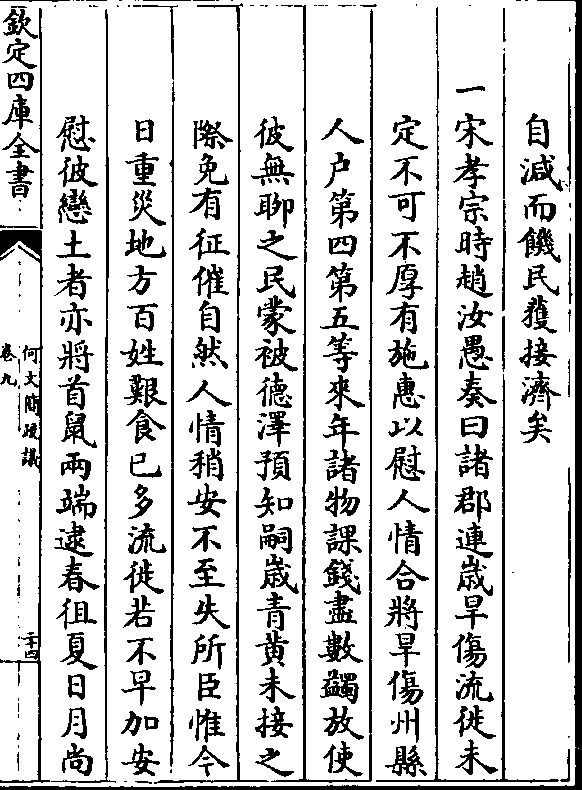 自減而饑民獲接濟矣
一宋孝宗時趙汝愚奏曰諸郡連歲旱傷流徙未
定不可不厚有施惠以慰人情合將旱傷州縣
人户第四第五等來年諸物課錢盡數蠲放使
彼無聊之民蒙被德澤預知嗣歲青黄未接之
際免有征催自然人情稍安不至失所臣惟今
日重災地方百姓艱食已多流徙若不早加安
慰彼戀土者亦將首鼠兩端逮春徂夏日月尚
欽定四庫全書
何文簡疏議
卷九
二十四